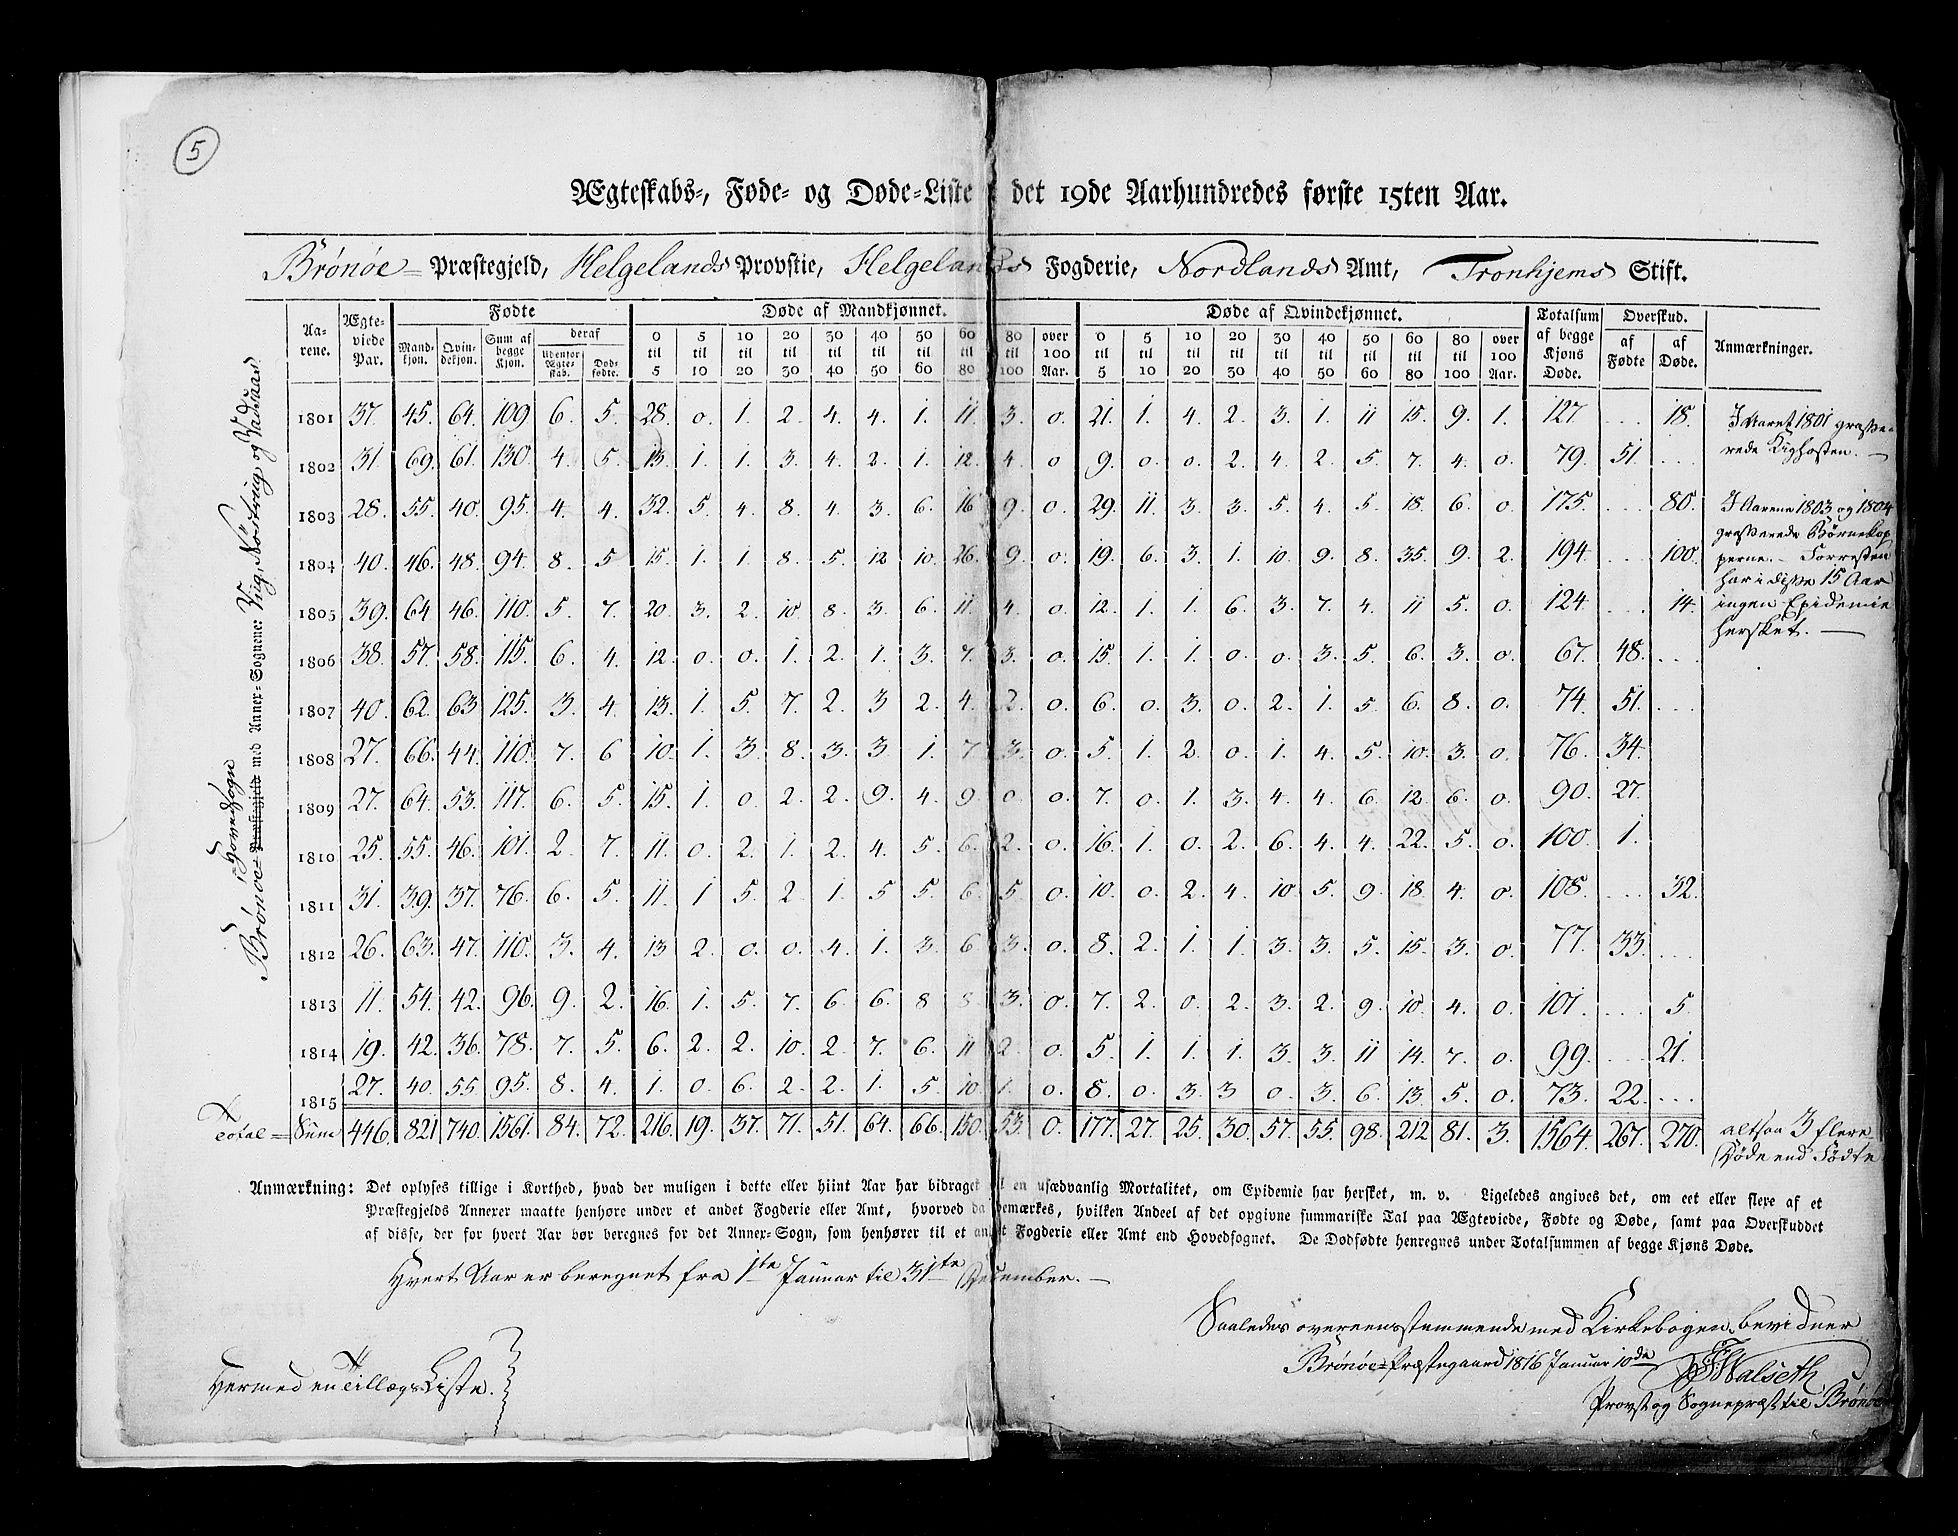 5
Ægteskabs-, Føde- og Døde-Liste det 19de Aarhundredes første 15ten Aar.
Brönöe Præstegjeld, Helgelands Provstie, Helgelands Fogderie, Nordlands Amt, Tronhjems Stift.
Brönöe Hovedsogn Præstegjeld med Annex-Sognene: Viig, Nöstvig, og Vadsaas
Aarene. Ægteviede Par. Fødte Døde af Mandkjønnet. Døde af Qvindekjønnet. Totalsum af begge Kjøns Døde. Overskud. Anmærkninger.
Mandkjøn. Qvindekjøn. Sum af begge Kjøn. deraf Udenfor Ægteskab. Dødfødte. 0 til 5 5 til 10 10 til 20 20 til 30 30 til 40 40 til 50 50 til 60 60 til 80 80 til 100 over 100 Aar. 0 til 5 5 til 10 10 til 20 20 til 30 30 til 40 40 til 50 50 til 60 60 til 80 80 til 100 over 100 Aar. af Fødte af Døde.
1801 37. 45. 64. 109 6. 5. 28. 0. 1. 2. 4. 4. 1. 11. 3. 0. 21. 1. 4. 2. 3. 1. 11 15. 9. 1. 127. ... 18.
1802 31. 69. 61. 130. 4. 5. 13. 1. 1. 3. 4. 2. 1. 12. 4. 0 9. 0. 0. 2. 4. 2. 5. 7. 4. 0. 79. 51. ...
1803 28. 55. 40. 95. 4. 4. 32. 5. 4. 8. 4. 3. 6. 16 9. 0. 29. 11. 3. 3. 5. 4. 5. 18. 6. 0. 175. ... 80.
1804 40. 46. 48. 94. 8. 5 15. 1. 1. 8. 5. 12 10. 26. 9. 0. 19. 6. 3. 1. 10. 9. 8. 35. 9. 2. 194. ... 100.
1805 39. 64 46. 110. 5. 7. 20 3. 2. 10 8. 3. 6. 11. 4. 0. 12. 1. 1. 6. 3. 7. 4. 11 5. 0. 124. ... 14.
1806 38. 57. 58. 115. 6. 4. 12. 0. 0. 1. 2. 1. 3. 7. 3. 0. 15. 1. 1. 0. 0. 3. 5. 6. 3. 0. 67. 48. ...
1807 40. 62. 63 125. 3. 4. 13. 1. 5. 7. 2. 3 2. 4. 2. 0. 6. 0. 3. 0. 2. 1. 5. 6. 8. 0. 74. 51. ...
1808 27. 66. 44. 110. 7. 6 10. 1. 3 8. 3. 3 1. 7 3. 0. 5. 1. 2. 0. 1. 4. 5. 10. 3. 0. 76. 34.
1809 27. 64. 53. 117. 6. 5. 15. 1. 0 2. 2. 9. 4. 9. 0 0. 7. 0. 1. 3. 4. 4. 6. 12. 6. 0. 90. 27.
1810 25. 55. 46. 101. 2. 7. 11. 0. 2. 1. 2. 4. 5. 6. 2. 0. 16. 1. 0. 2. 6. 4. 4. 22. 5. 0. 100. 1.
1811 31. 39. 37. 76. 6. 5. 11. 1 5. 2. 1. 5 5. 6. 5 0. 10. 0. 2. 4. 10 5. 9. 18 4. 0. 108. ... 32.
1812 26. 63. 47. 110. 3. 4. 13 2. 0. 0. 4. 1. 3. 6. 3. 0. 8. 2. 1. 1. 3. 3. 5. 15. 3. 0. 77. 33. ...
1813 11. 54. 42. 96. 9. 2. 16. 1. 5. 7. 6. 6. 8 8. 3. 0. 7. 2. 0. 2. 3. 2. 9. 10. 4. 0. 101. ... 5.
1814 19. 42. 36. 78. 7. 5. 6. 2. 2. 10. 2. 7. 6. 11 2. 0. 5. 1. 1. 1. 3. 3. 11 14. 7. 0. 99. ... 21.
1815 27. 40. 55. 95. 8. 4. 1. 0. 6. 2. 2. 1. 5. 10 1. 0. 8. 0. 3. 3 0. 3. 6. 13. 5. 0. 73. 22. ...
Total = Sum 446. 821 740. 1561. 84. 72. 216. 19. 37. 71. 51. 64. 66. 150. 53. 0. 177. 27. 25. 30. 57. 55. 98. 212 81. 3. 1564. 267. 270.
I Aaret 1801 grasse-
rede Kighosten.
I Aarene 1803 og 1804
grasserede Børnekop
perne. - Forresten
har i disse 15 Aar
ingen Epidemie
hersket.
altsaa 3 flere
Døde end Fødte
Anmærkning: Det oplyses tillige i Korthed, hvad der muligen i dette eller hiint Aar har bidraget en usædvanlig Mortalitet, om Epidemie har hersket, m. v. Ligeledes angives det, om eet eller flere af et
Præstegjelds Annexer maatte henhøre under et andet Fogderie eller Amt, hvorved da bemærkes, hvilken Andeel af det opgivne summariske Tal paa Ægteviede, Fødte og Døde, samt paa Overskuddet
af disse, der for hvert Aar bør beregnes for det Annex-Sogn, som henhører til et andet Fogderie eller Amt end Hovedsognet. De Dødfødte henregnes under Totalsummen af begge Kjøns Døde.
Hvert Aar er beregnet fra 1te Januar til 31te December.
Saaledes overeensstemmende med Kirkebogen bevidner
Brönöe Præstegaard 1816 Januar 10de
Walseth
Provst og Sognepræst til Brönöe
Hermed en Tillægs Liste.